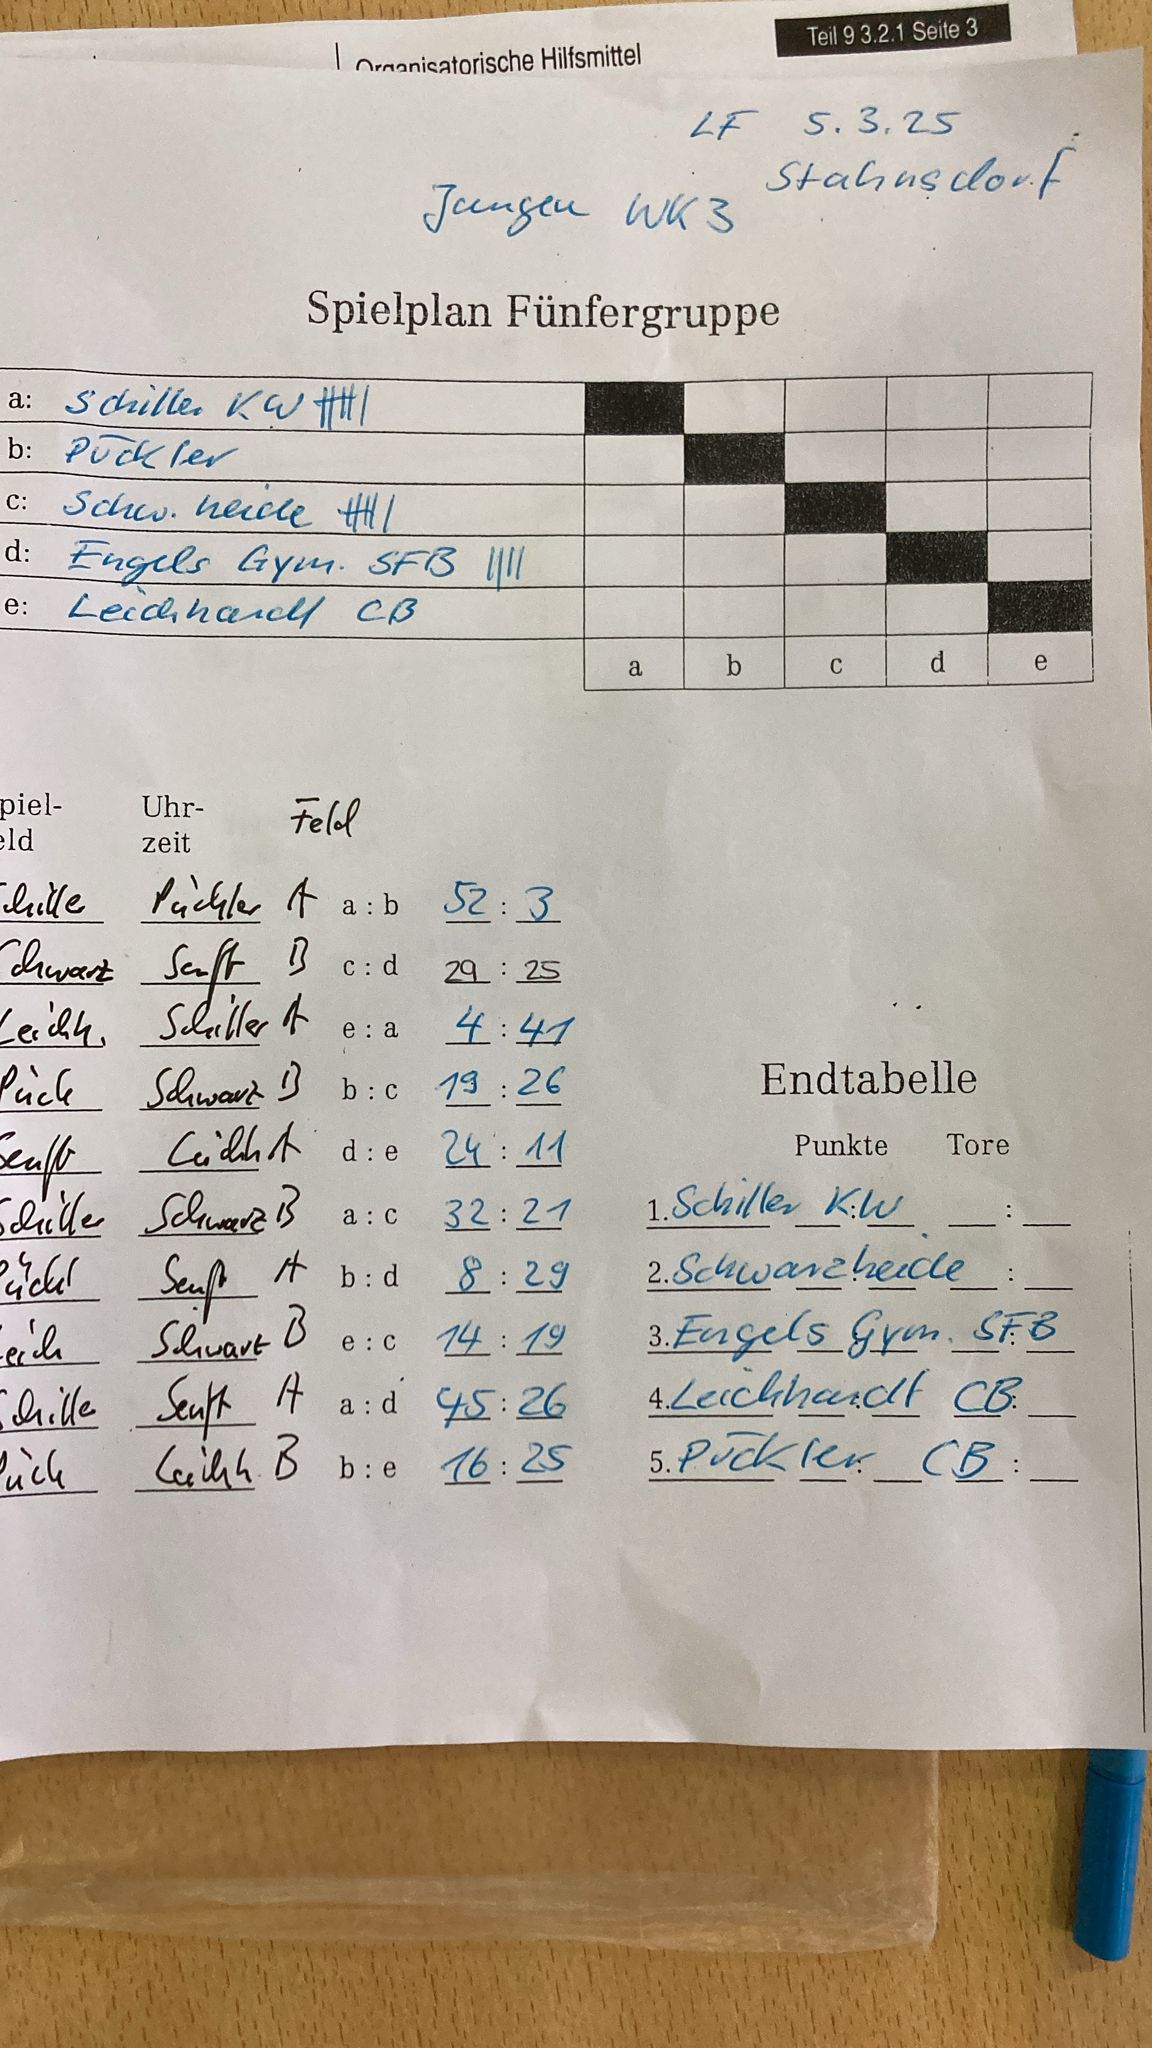 Teil 9 3.2.1 Seite 3
Organisatorische Hilfsmittel
LF 5.3.25
Stahnsdorf
Jungen WK3
Spielplan Fünfergruppe
a: Schiller KW
b: Pückler
c: Schw. heide
d: Engels Gym. SFB
e: Leichhardt CB
a b c d e
piel- Uhr- Feld
eld zeit
chille Püchler A a : b 52 : 3
chwarz Senft B c : d 29 : 25
Leichh. Schiller A e : a 4 : 41
Pück Schwarz B b : c 19 : 26
Senft Leichh A d : e 24 : 11
Schiller Schwarz B a : c 32 : 21
ückl Senft A b : d 8 : 29
eich Schwart B e : c 14 : 19
Schille Senft A a : d 45 : 26
ück Leichh. B b : e 16 : 25
Endtabelle
Punkte Tore
1. Schiller K:W :
2. Schwarzheide :
3. Engels Gym. SFB
4. Leichhardt CB :
5. Pückler CB :